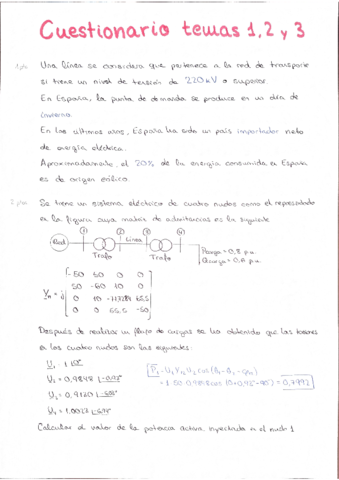 Cuestionario temas 1, 2 y 3
1 pto Una línea se considera que pertenece a la red de transporte
si tiene un nivel de tensión de 220 kV o superior.
En España, la punta de demanda se produce en un día de
invierno.
En los últimos años, España ha sido un país importador neto
de energía eléctrica.
Aproximadamente, el 20% de la energía consumida en España
es de origen eólico.
2 ptos Se tiene un sistema eléctrico de cuatro nudos como el representado
en la figura cuya matriz de admitancias es la siguiente
1 2 3 4
Red Línea
Trafo Trafo
Pcarga = 0,8 p.u.
Qcarga = 0,6 p.u.
-50 50 0 0
50 -60 10 0
0 10 65,5
0 0 65,5 -50
Después de realizar un flujo de cargas se ha obtenido que las tensiones
en los cuatro nudos son las siguientes:
U1 = 1 |0°
U2 = 0,9848
Calcular el valor de la potencia activa inyectada en el nudo 1